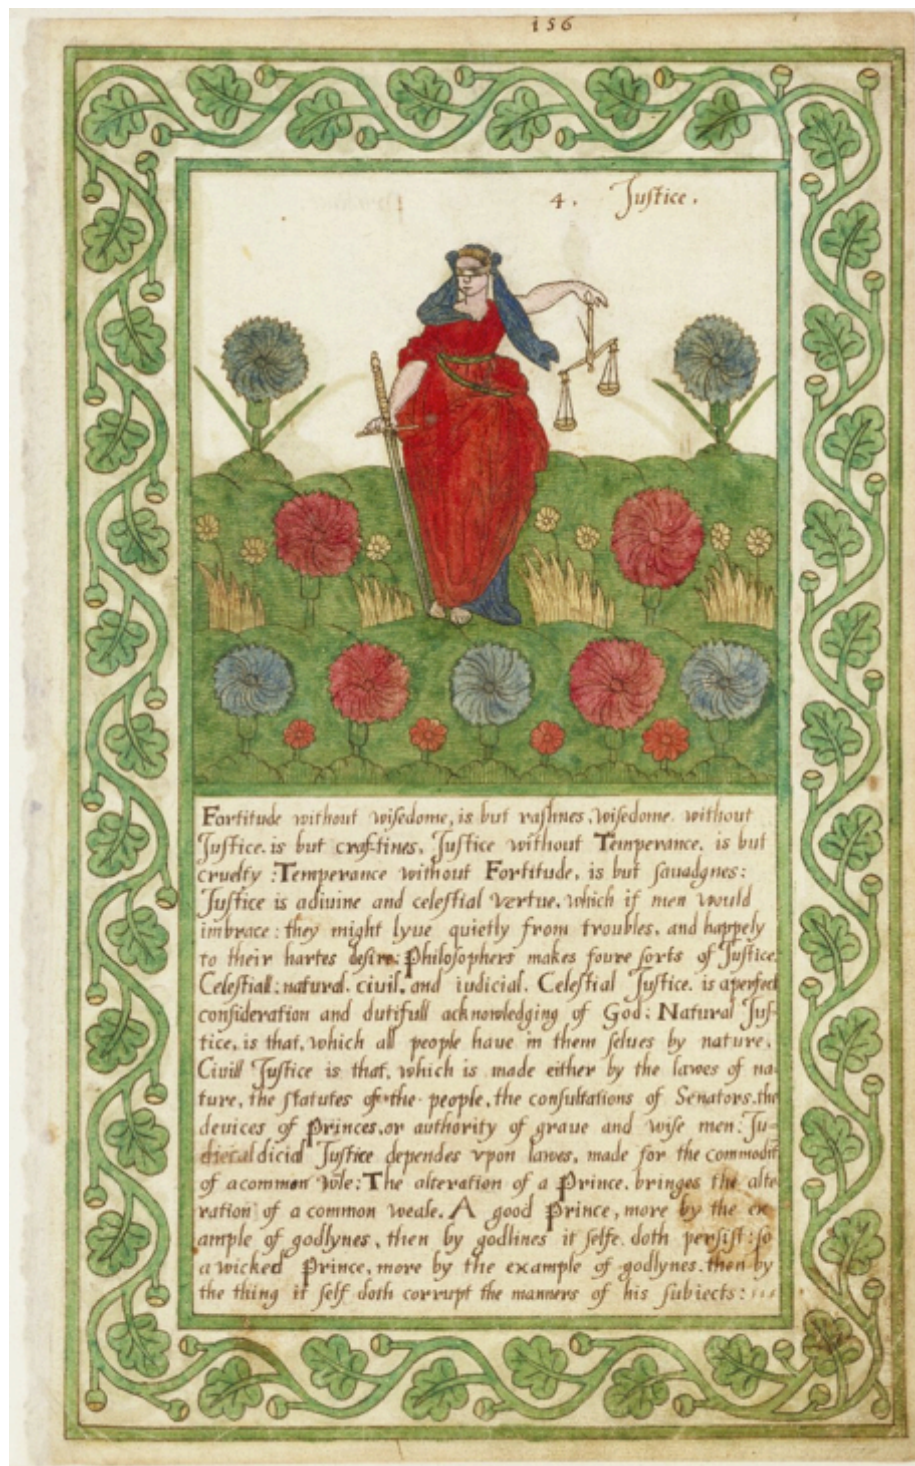 156
4. Justice.
Fortitude without wisedome, is but rashnes, wisedome. without
Justice. is but craftines, Justice without Temperance. is but
cruelty : Temperance without Fortitude, is but sauadgnes:
Justice is adiuine and celestial vertue, which if men would
imbrace : they might lyue quietly from troubles, and happely
to their hartes desire: Philosophers makes foure sorts of Justice.
Celestiall : natural. civil, and iudicial. Celestial Justice. is aperfect
consideration and dutifull acknowledging of God: Natural Jus-
tice, is that, which all people haue in them selues by nature.
Civill Justice is that, which is made either by the lawes of na-
ture, the statutes of the people, the consultations of Senators, the
deuices of Princes, or authority of graue and wise men: Ju-
dicial Justice dependes vpon lawes, made for the commodit
of acommon wle: The alteration of a Prince. bringes the alte
ration of a common weale. A good Prince, more by the ex-
ample of godlynes, then by godlines it selfe. doth persist: so
a wicked Prince, more by the example of godlynes. then by
the thing it self doth corrupt the manners of his subiects: